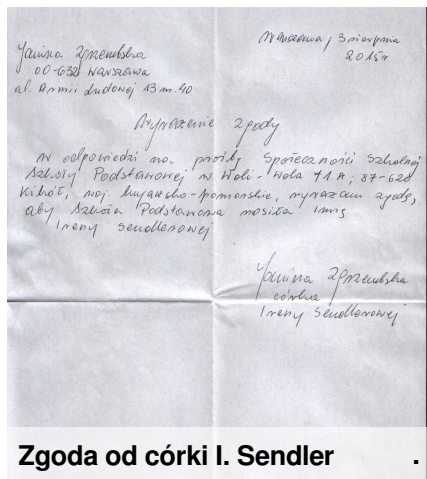 Warszawa, 3 sierpnia
2015r
Janina Zgrzembska
00-632 Warszawa
al. Armii Ludowej 13 m. 40
Wyrażenie zgody
W odpowiedzi na prośbę Społeczności Szkolnej
Szkoły Podstawowej w Woli - Wola 11A; 87-620
Kikół, woj. kujawsko-pomorskie, wyrażam zgodę,
aby Szkoła Podstawowa nosiła imię
Ireny Sendlerowej
Janina Zgrzembska
córka
Ireny Sendlerowej
Zgoda od córki I. Sendler .